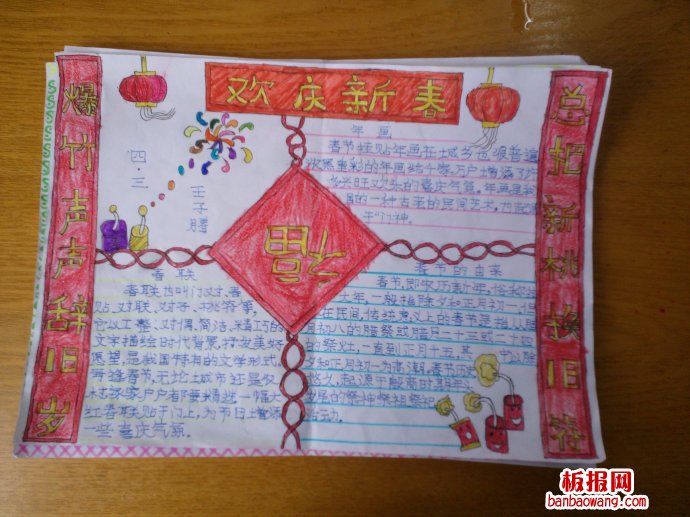 欢庆新春
爆竹声声辞旧岁
总把新桃换旧符
四·三
王子腾
年画
春节挂贴年画在城乡也很普遍
浓黑重彩的年画给千家万户增添了许
多兴旺欢乐的喜庆气氛，年画是我
国的一种古老的民间艺术，
门神。
春联
春联也叫门对、春
贴、对联、对子、桃符等，
它以工整、对偶、简洁、精巧的
文字描绘时代背景，抒发美好
愿望，是我国特有的文学形式。
每逢春节，无论城市还是农
村，家家户户都要精选一幅大
红春联贴于门上，为节日增添
一些喜庆气氛。
春节的由来
春节，即农历新年，俗称
大年，一般指除夕和正月初一
在民间，传统意义上的春节是指从腊
月初八的腊祭或腊月二十三或二十四
的祭灶，一直到正月十五，其中以除
夕和正月初一为高潮。春节历史
悠久，起源于殷商时期年头
岁尾的祭神祭祖
活动。
板报网
banbaowang.com